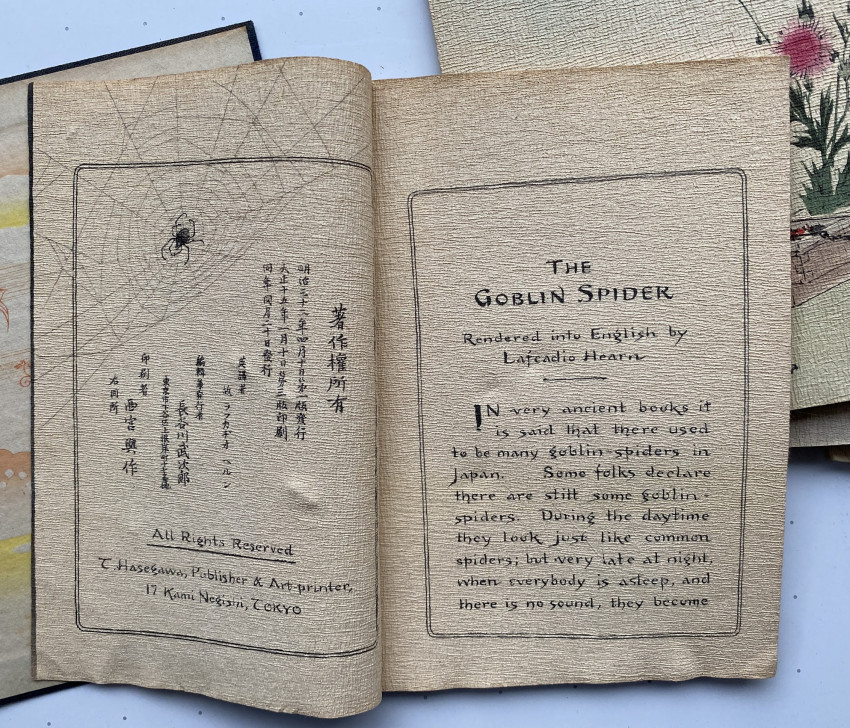 著作權所有
明治三十二年四月十日第一版發行
大正十五年一月十日第三版印刷
同年同月二十日發行
英譯者
故 ラフカヂオ ヘルン
編輯兼發行者
長谷川武次郎
印刷者
西宮與作
右同所
All Rights Reserved
T. Hasegawa, Publisher & Art-printer,
17 Kami Negishi, TOKYO
THE
GOBLIN SPIDER
Rendered into English by
Lafcadio Hearn
IN very ancient books it
is said that there used
to be many goblin-spiders in
Japan. Some folks declare
there are still some goblin-
spiders. During the daytime
they look just like common
spiders; but very late at night,
when everybody is asleep, and
there is no sound, they become